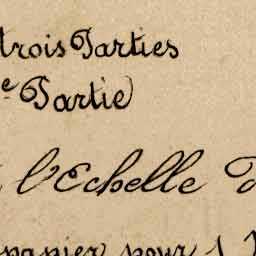 trois Parties
e Partie
l'Echelle
panier pour